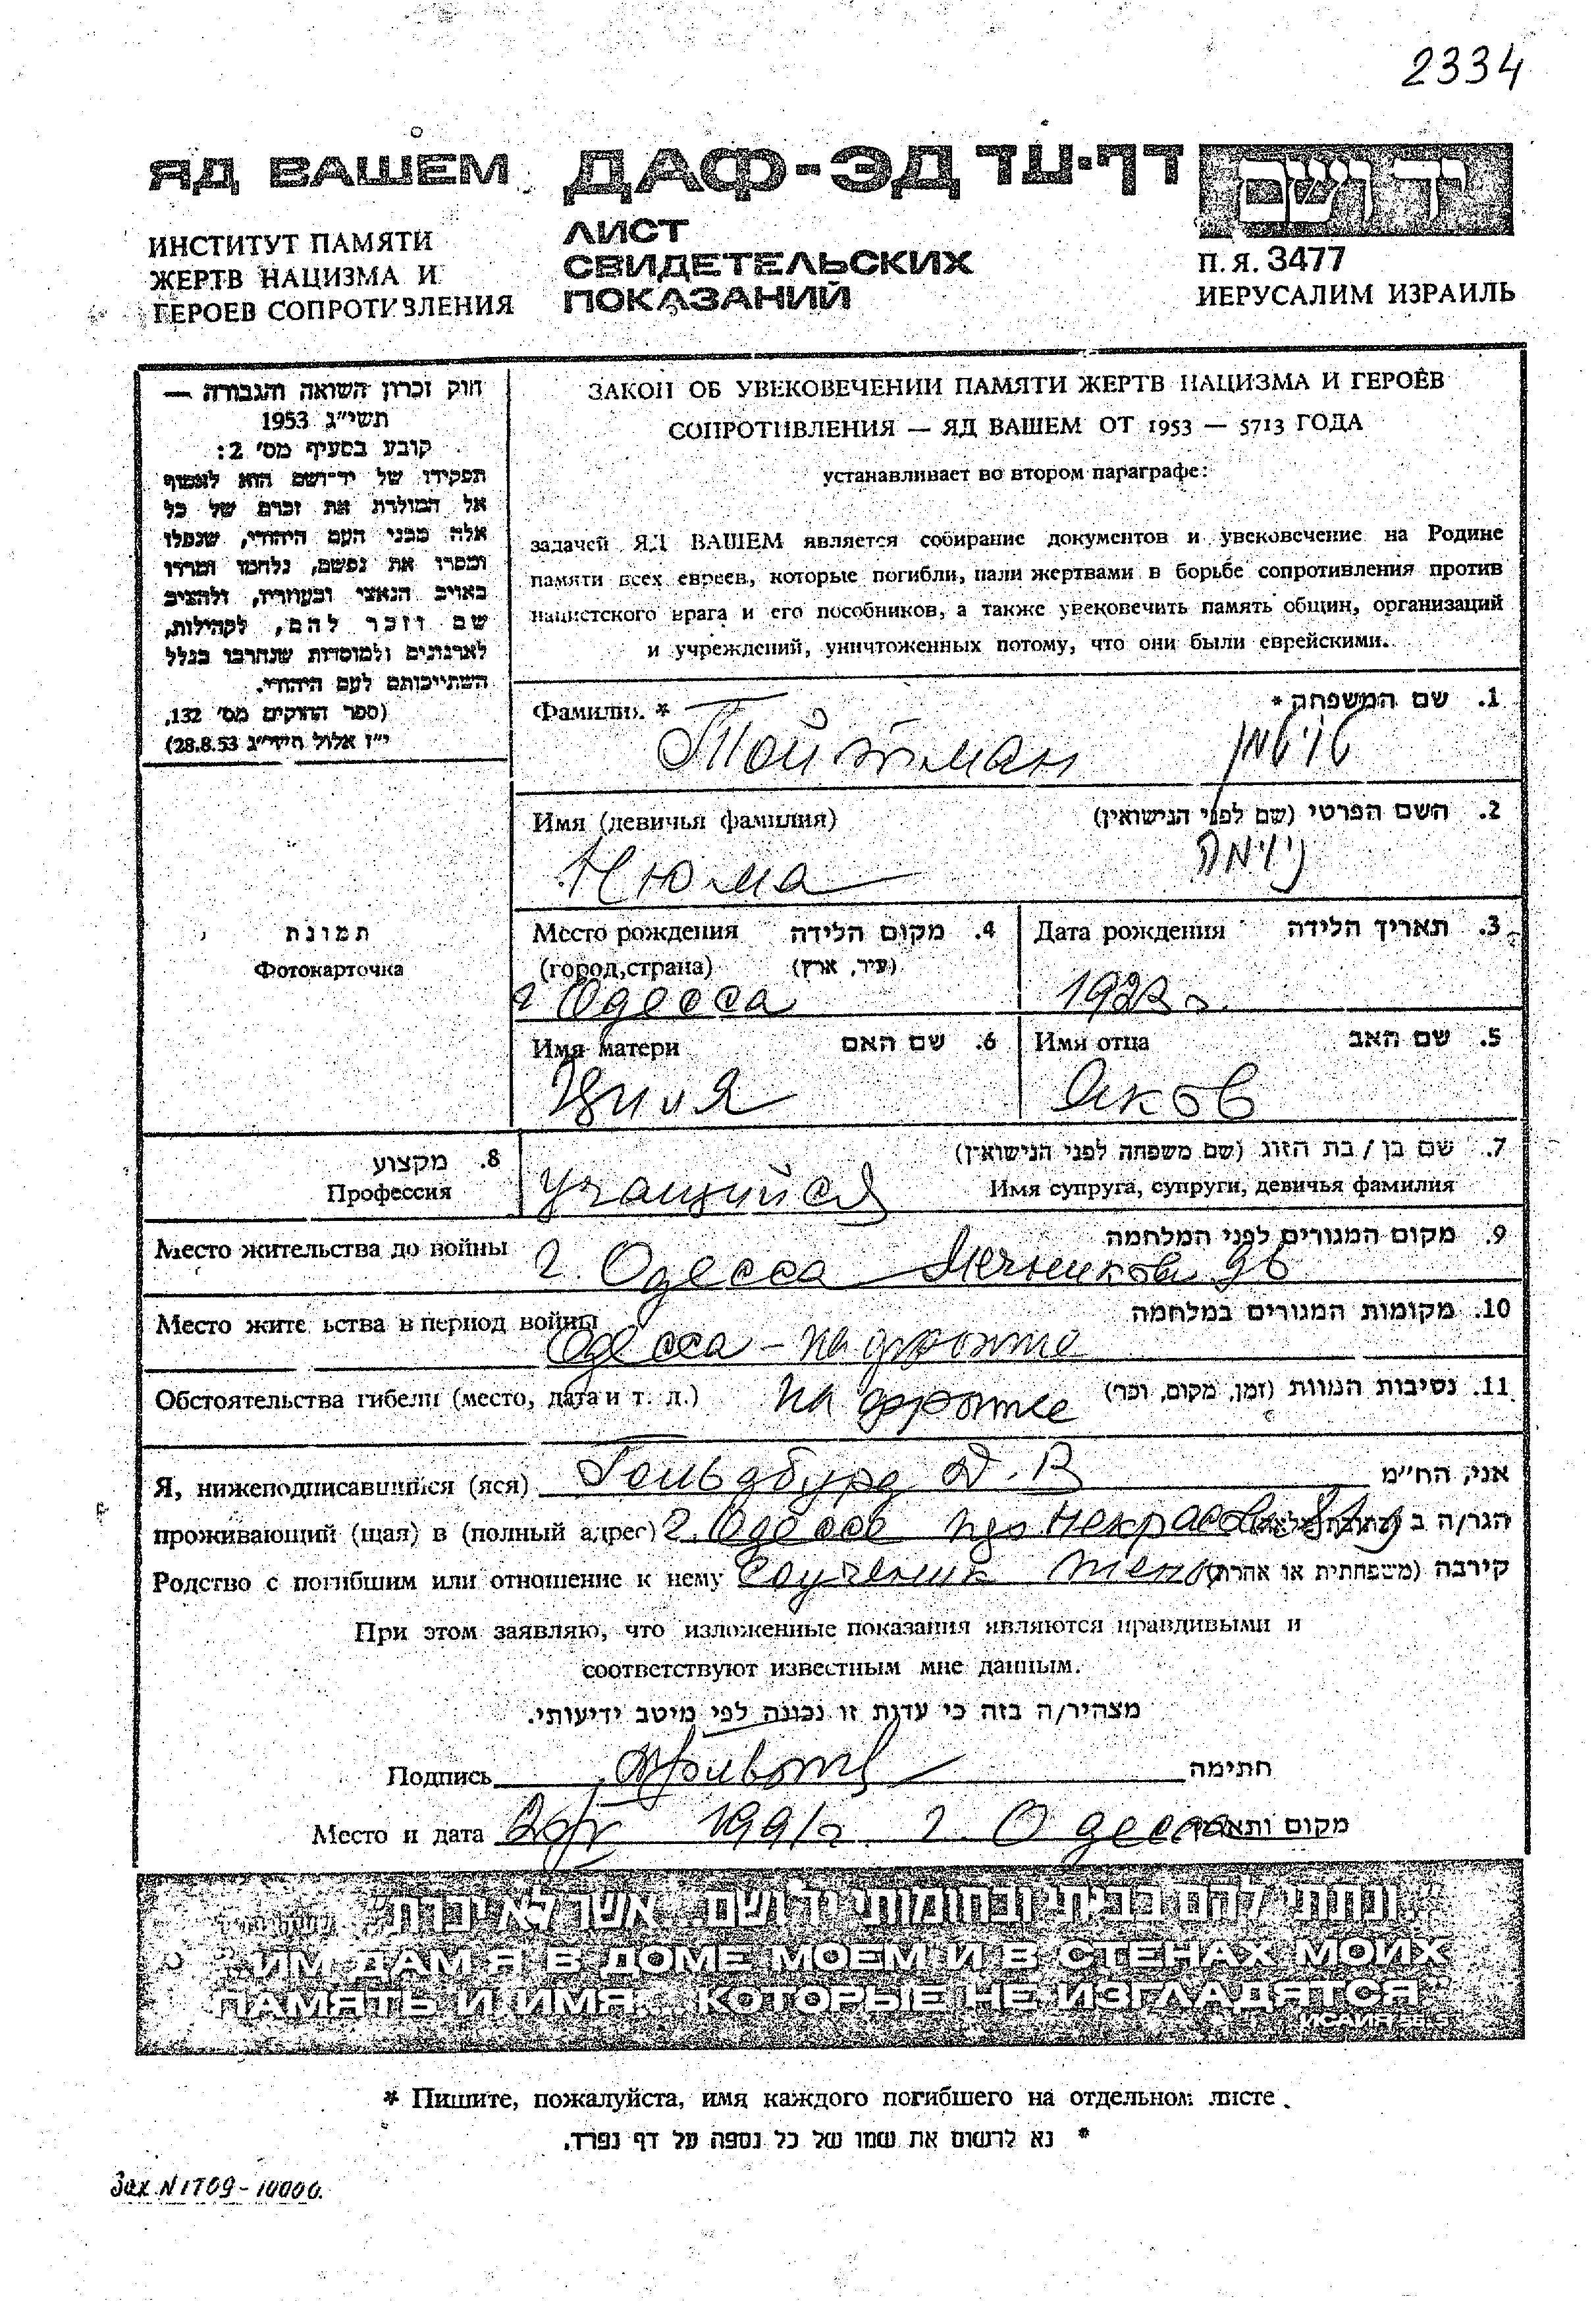 2334
ЯД ВАШЕМ
ИНСТИТУТ ПАМЯТИ
ЖЕРТВ НАЦИЗМА И
ГЕРОЕВ СОПРОТИВЛЕНИЯ
ДАФ-ЭД דף-עד
ЛИСТ
СВИДЕТЕЛЬСКИХ
ПОКАЗАНИЙ
יד ושם
П.Я. 3477
ИЕРУСАЛИМ ИЗРАИЛЬ
חוק זכרון השואה והגבורה —
תשי"ג 1953
קובע בסעיף מס' 2:
תפקידו של יד-ושם הוא לאסוף
אל המולדת את זכרם של כל
אלה מבני העם היהודי, שנפלו
ומסרו את נפשם, נלחמו ומרדו
באויב הנאצי ובעוזריו, ולהציב
שם וזכר להם, לקהילות,
לארגונים ולמוסדות שנחרבו בגלל
השתייכותם לעם היהודי.
(ספר החוקים מס' 132,
י"ז אלול תשי"ג 28.8.53)
ЗАКОН ОБ УВЕКОВЕЧЕНИИ ПАМЯТИ ЖЕРТВ НАЦИЗМА И ГЕРОЕВ
СОПРОТИВЛЕНИЯ — ЯД ВАШЕМ ОТ 1953 — 5713 ГОДА
устанавливает во втором параграфе:
задачей ЯД ВАШЕМ является собирание документов и увековечение на Родине
памяти всех евреев, которые погибли, пали жертвами в борьбе сопротивления против
нацистского врага и его пособников, а также увековечить память общин, организаций
и учреждений, уничтоженных потому, что они были еврейскими.
Фамилия * 1. שם המשפחה *
Тойтман טויטמן
Имя (девичья фамилия) 2. השם הפרטי (שם לפני הנישואין)
Нюма ניומה
תמונת
Фотокарточка
Место рождения 4. מקום הלידה
(город, страна) (עיר, ארץ)
г Одесса
Дата рождения 3. תאריך הלידה
Имя матери 6. שם האם
Циля
Имя отца 5. שם האב
Яков
8. מקצוע
Профессия
учащийся
7. שם בן / בת הזוג (שם משפחה לפני הנישואין)
Имя супруга, супруги, девичья фамилия
Место жительства до войны 9. מקום המגורים לפני המלחמה
г. Одесса
Место жительства в период войны 10. מקומות המגורים במלחמה
Одесса - на фронте
Обстоятельства гибели (место, дата и т. д.) на фронте 11. נסיבות המוות (זמן, מקום, וכו')
Я, нижеподписавшийся (яся) Гольдбурд Д. В אני, הח"מ
проживающий (щая) в (полный адрес) г. Одесса הגר/ה ב
Родство с погибшим или отношение к нему קירבה (משפחתית או אחרת)
При этом заявляю, что изложенные показания являются правдивыми и
соответствуют известным мне данным.
מצהיר/ה בזה כי עדות זו נכונה לפי מיטב ידיעותי.
Подпись חתימה
Место и дата 1991г. г. Одесса מקום ותאריך
"...ונתתי להם בביתי ובחומותי יד ושם... אשר לא יכרת"
"...ИМ ДАМ Я В ДОМЕ МОЕМ И В СТЕНАХ МОИХ
ПАМЯТЬ И ИМЯ... КОТОРЫЕ НЕ ИЗГЛАДЯТСЯ"
ИСАИЯ 56.5
* Пишите, пожалуйста, имя каждого погибшего на отдельном листе.
* נא לרשום את שמו של כל נספה על דף נפרד.
Зак. N 1709 - 10000.